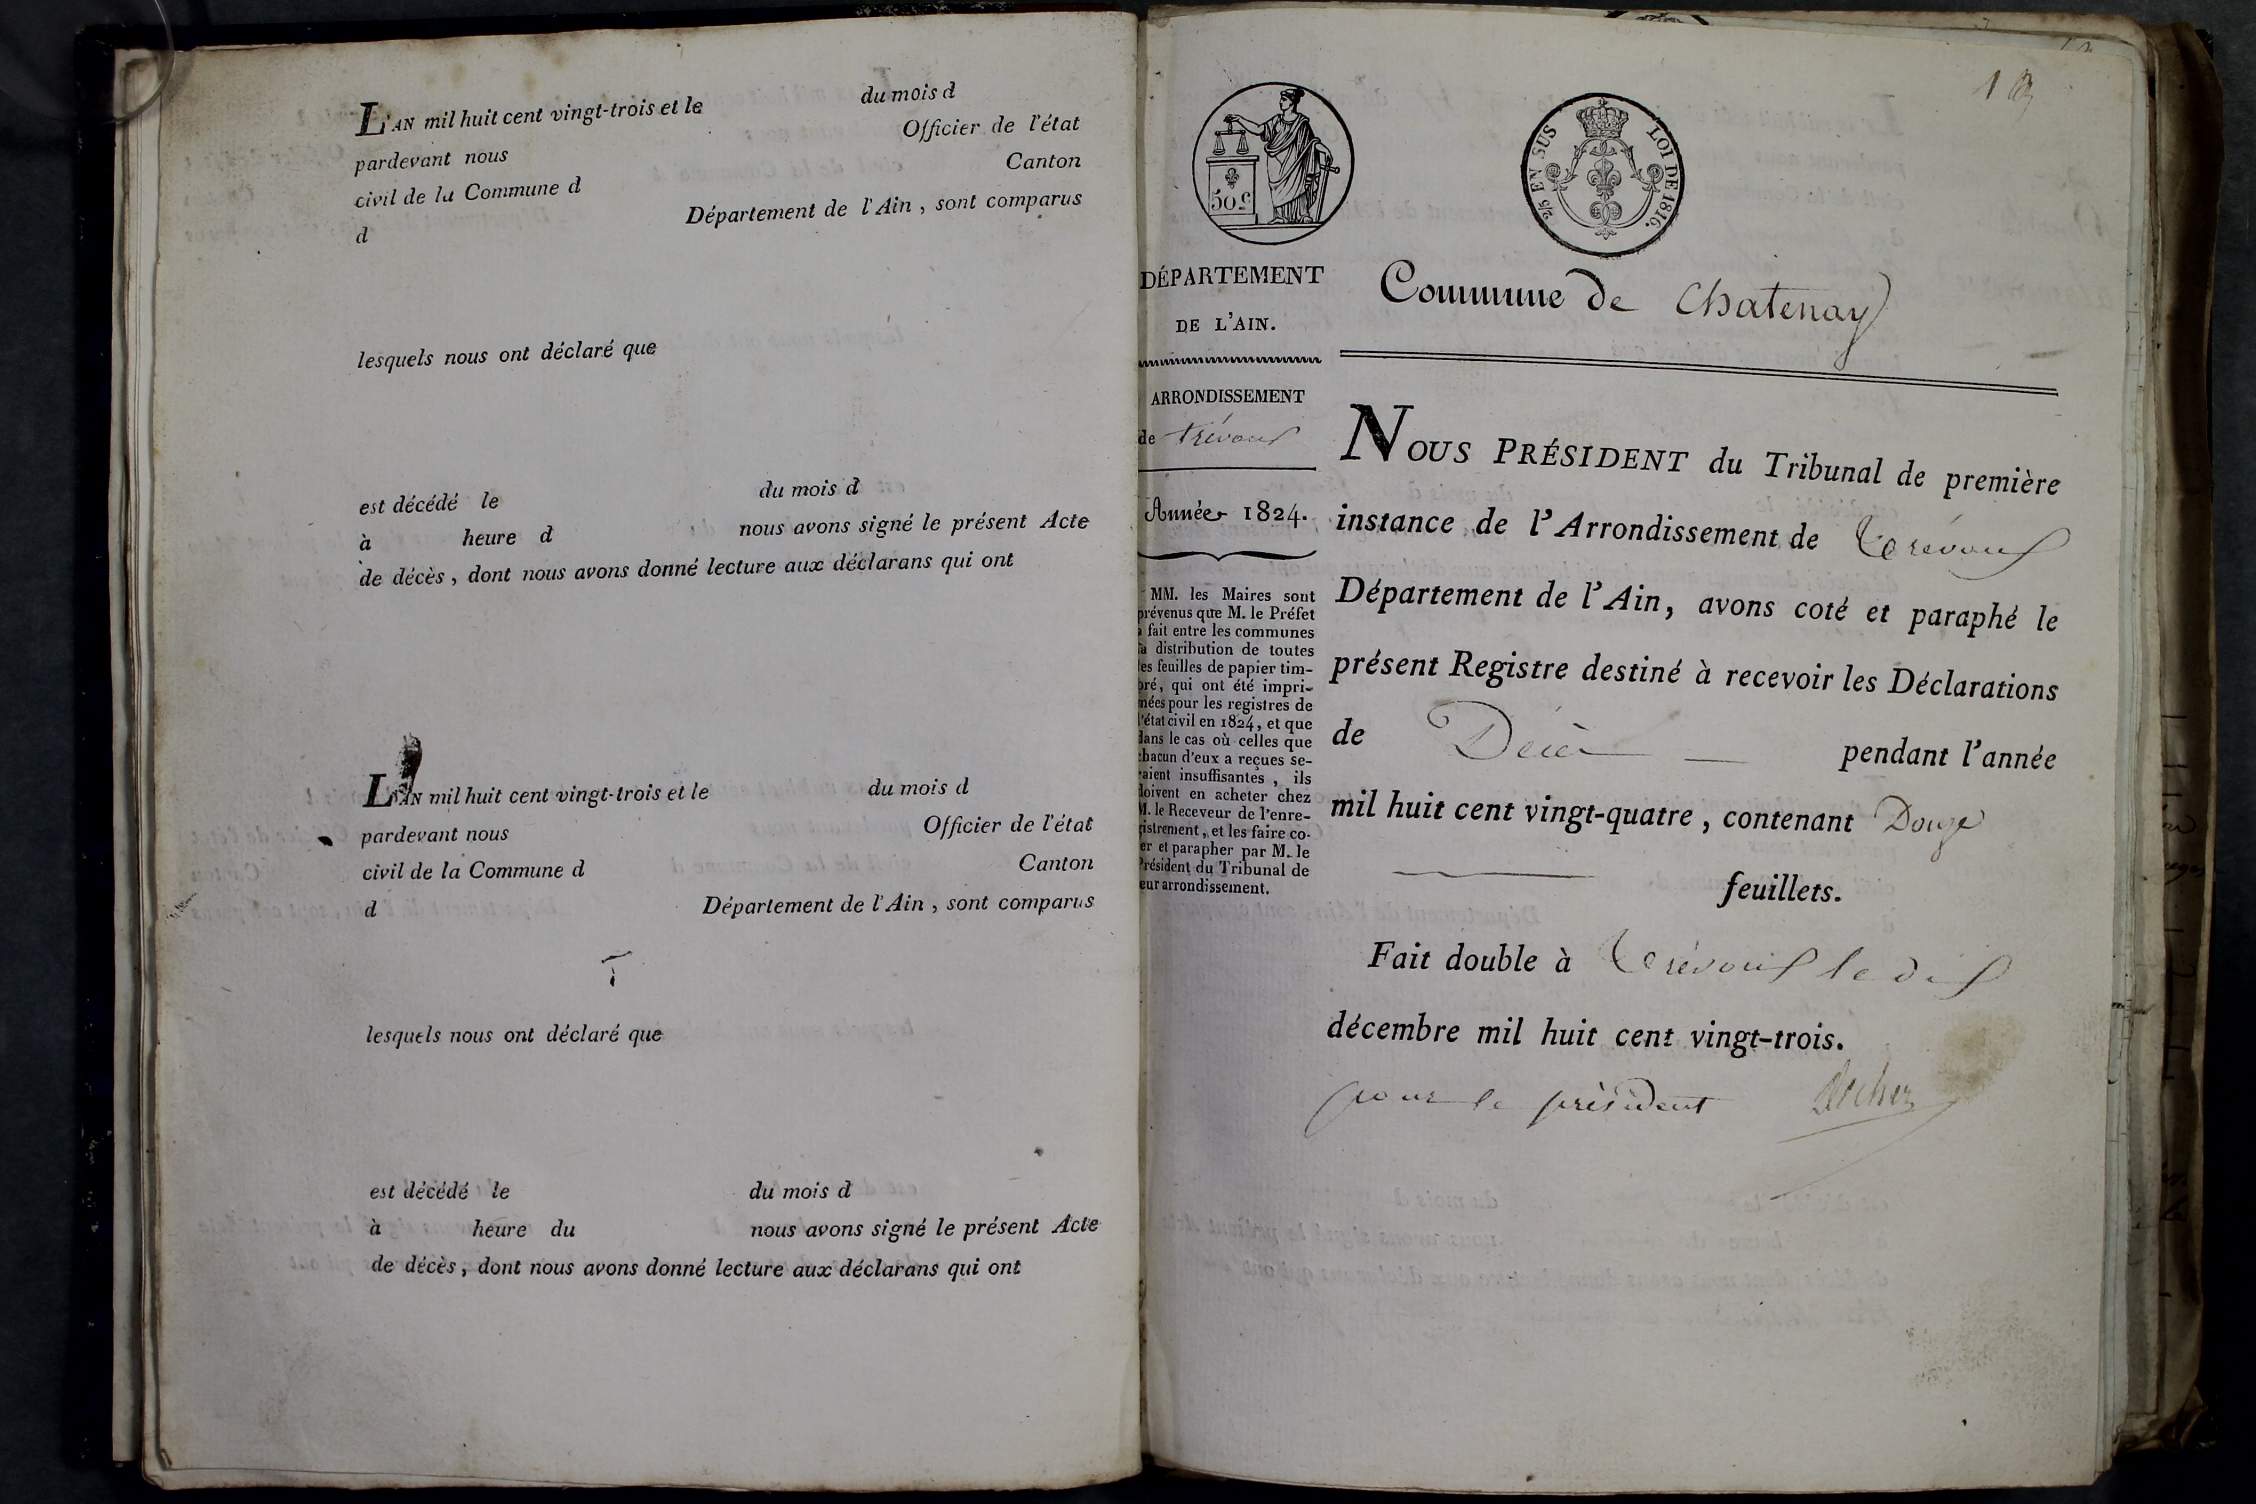 L'AN mil huit cent vingt-trois et le du mois d
pardevant nous Officier de l'état
civil de la Commune d Canton
d Département de l'Ain, sont comparus
lesquels nous ont déclaré que
est décédé le du mois d
à heure d nous avons signé le présent Acte
de décès, dont nous avons donné lecture aux déclarans qui ont
L'AN mil huit cent vingt-trois et le du mois d
pardevant nous Officier de l'état
civil de la Commune d Canton
d Département de l'Ain, sont comparus
lesquels nous ont déclaré que
est décédé le du mois d
à heure du nous avons signé le présent Acte
de décès, dont nous avons donné lecture aux déclarans qui ont
1
50 c
2/5 EN SUS LOI DE 1816.
DÉPARTEMENT
DE L'AIN.
ARRONDISSEMENT
de trévoux
Année 1824.
MM. les Maires sont
prévenus que M. le Préfet
a fait entre les communes
la distribution de toutes
les feuilles de papier tim-
bré, qui ont été impri-
mées pour les registres de
l'état civil en 1824, et que
dans le cas où celles que
chacun d'eux a reçues se-
raient insuffisantes, ils
doivent en acheter chez
M. le Receveur de l'enre-
gistrement, et les faire co-
ter et parapher par M. le
Président du Tribunal de
leur arrondissement.
Commune de Chatenay
NOUS PRÉSIDENT du Tribunal de première
instance de l'Arrondissement de trévoux
Département de l'Ain, avons coté et paraphé le
présent Registre destiné à recevoir les Déclarations
de Décès pendant l'année
mil huit cent vingt-quatre, contenant Douze
feuillets.
Fait double à trévoux le dix
décembre mil huit cent vingt-trois.
pour le président